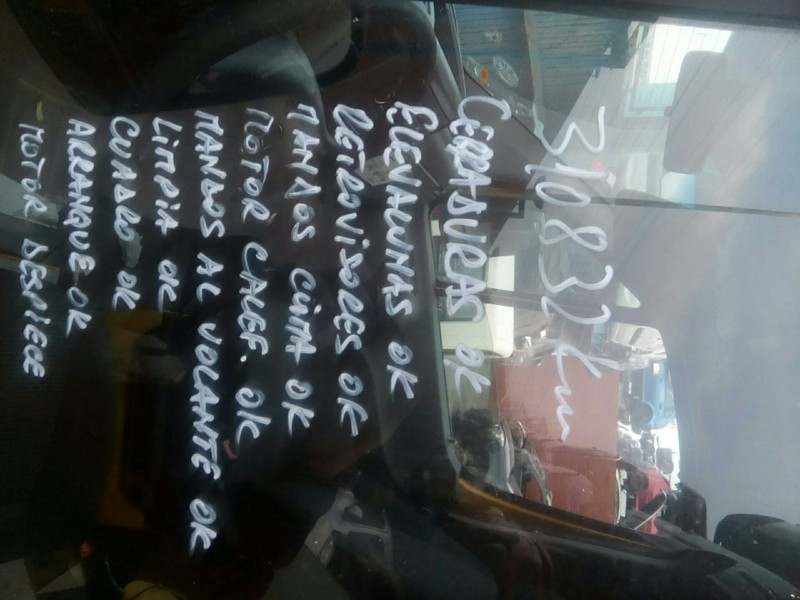 310832 km
CERRADURAS OK
ELEVALUNAS OK
RETROVISORES OK
MANDOS CLIMA OK
MOTOR CALEF. OK
MANDOS AL VOLANTE OK
LIMPIA OK
CUADRO OK
ARRANQUE OK
MOTOR DESPIECE